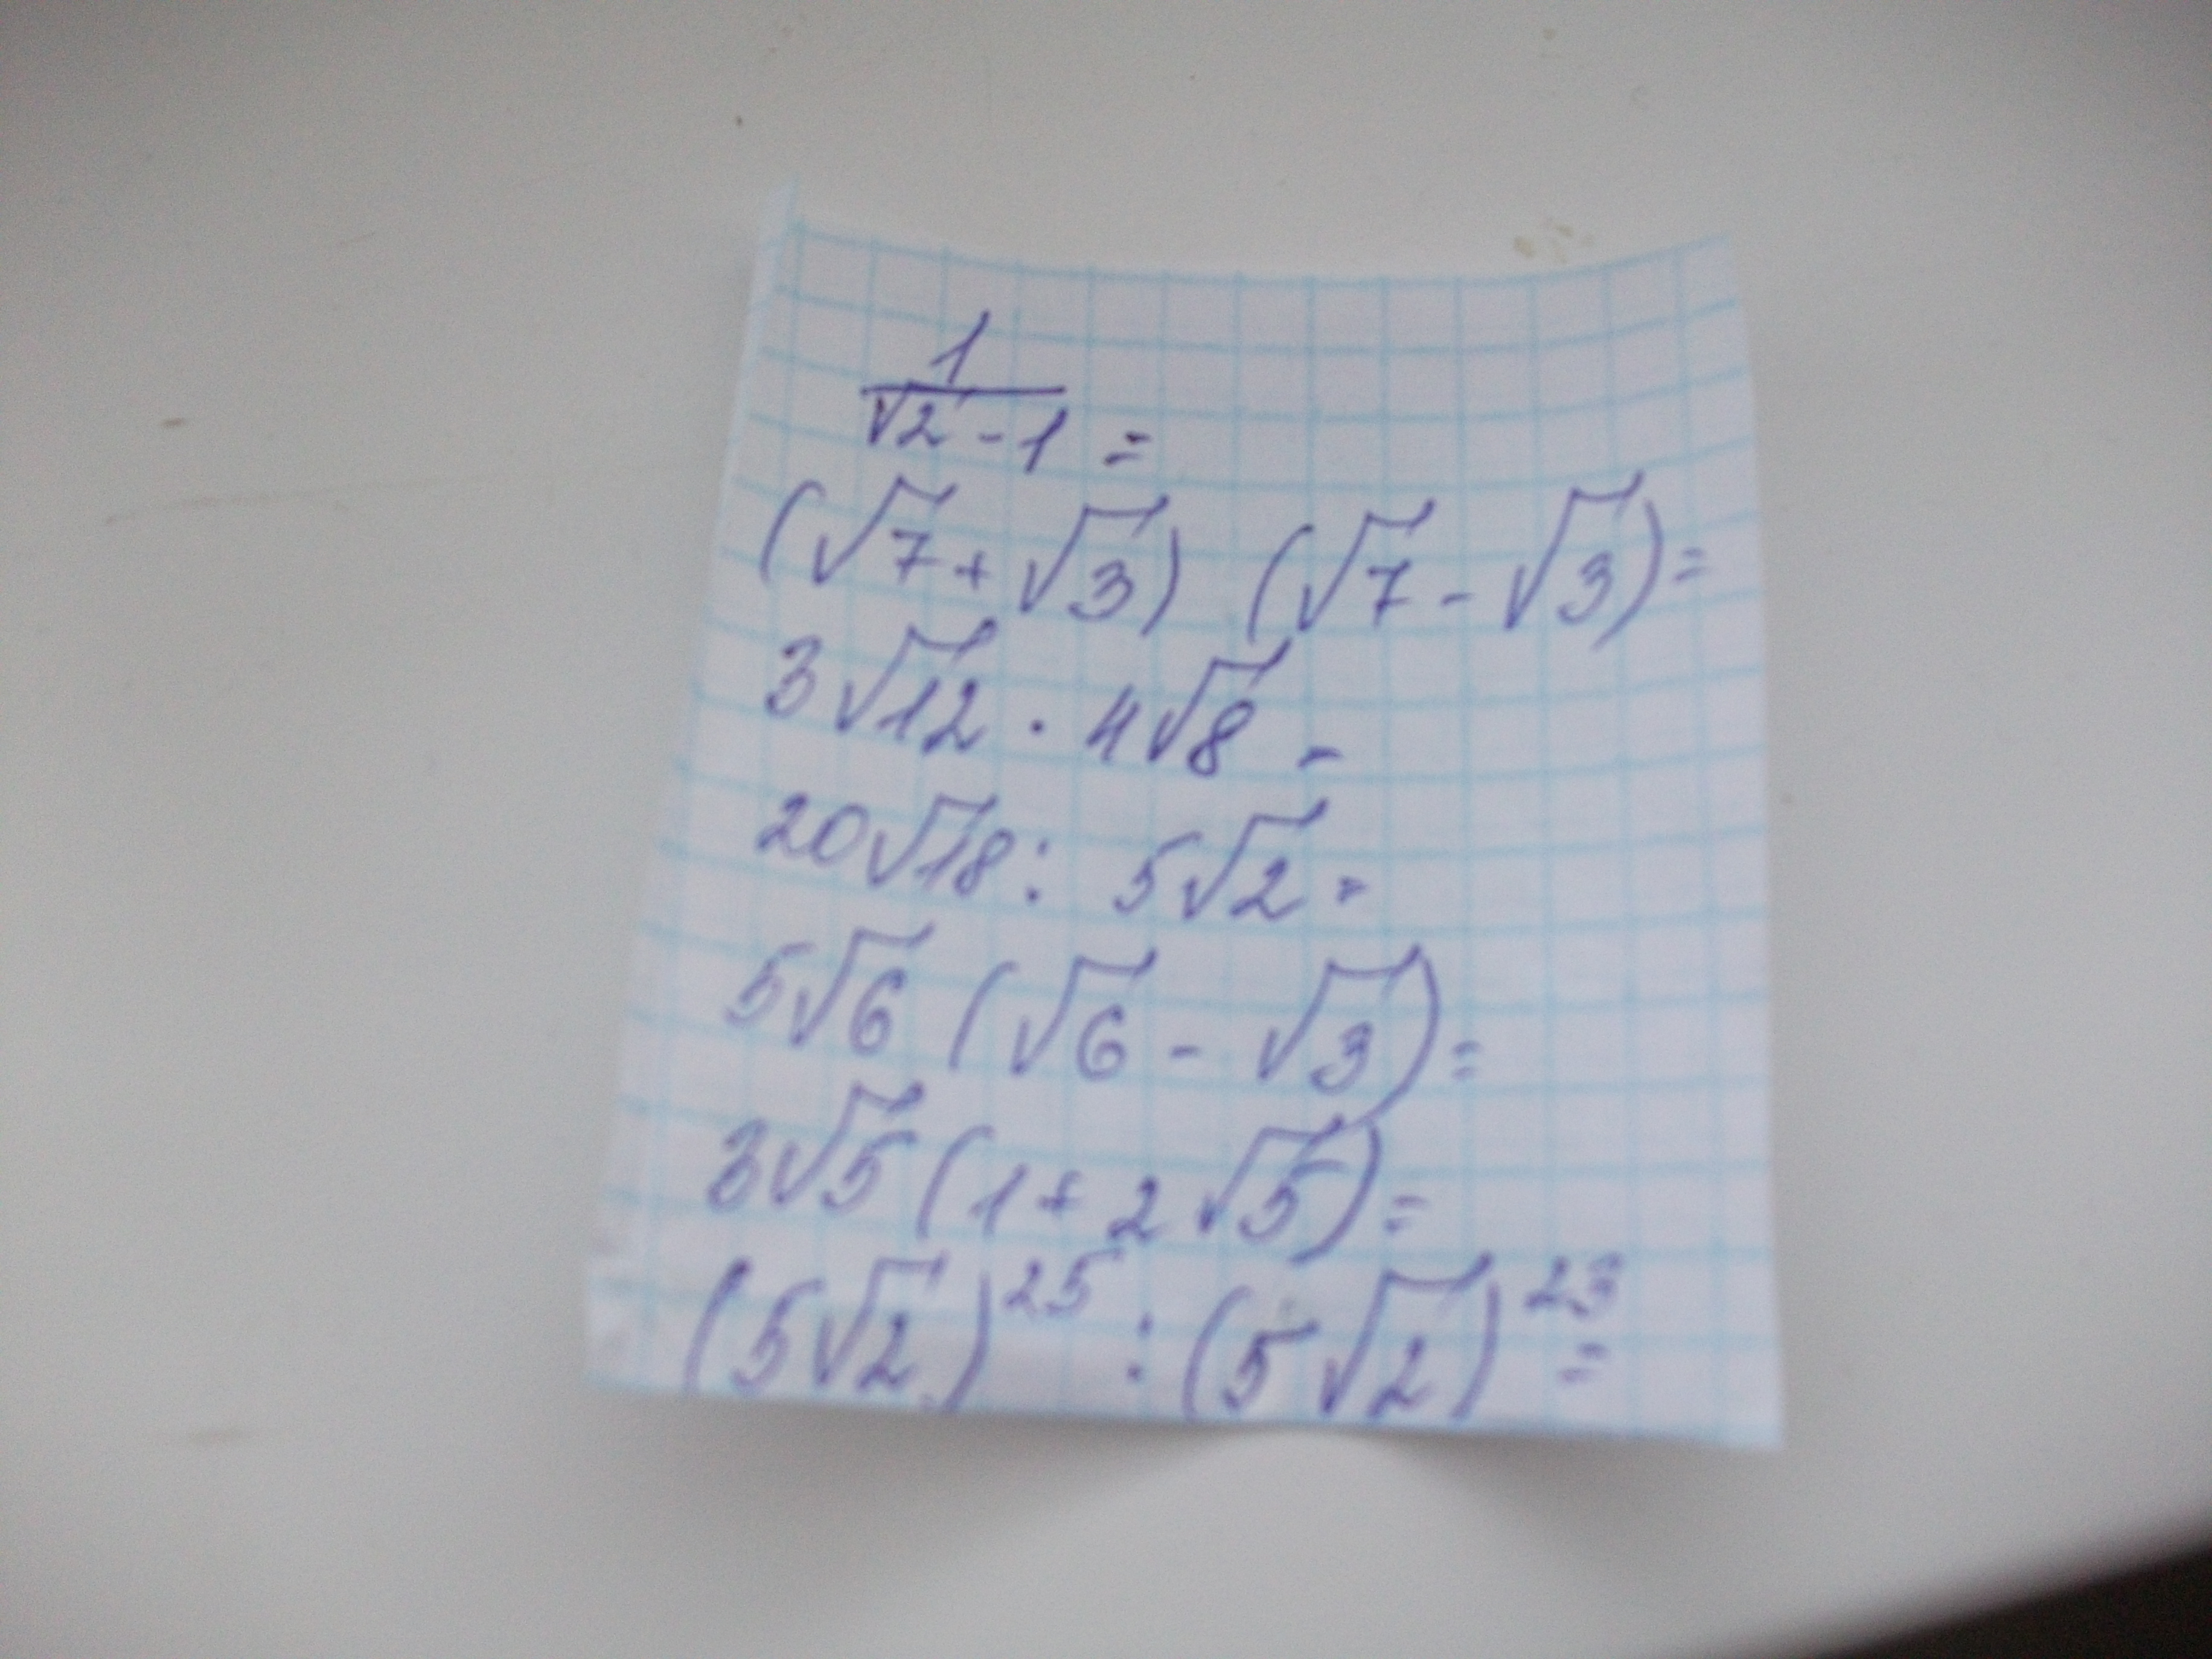 1/(√2 - 1) =
(√7 + √3) (√7 - √3) =
3√12 · 4√8 =
20√18 : 5√2 =
5√6 (√6 - √3) =
3√5 (1 + 2√5) =
(5√2)^25 : (5√2)^23 =